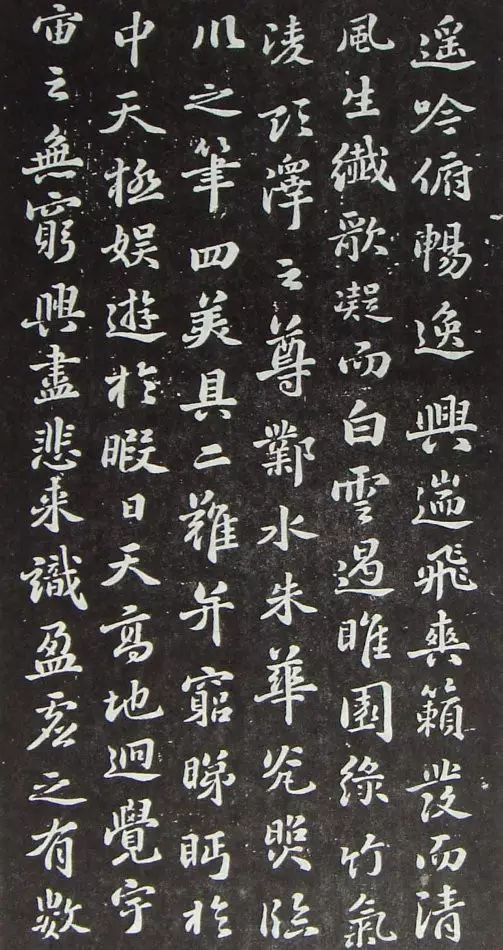 遥吟俯暢逸興遄飛爽籟發而清
風生纖歌凝而白雲遏睢園綠竹氣
淩彭澤之尊鄴水朱華光照臨
川之筆四美具二難并窮睇眄於
中天極娛遊於暇日天高地迥覺宇
宙之無窮興盡悲来識盈虛之有數